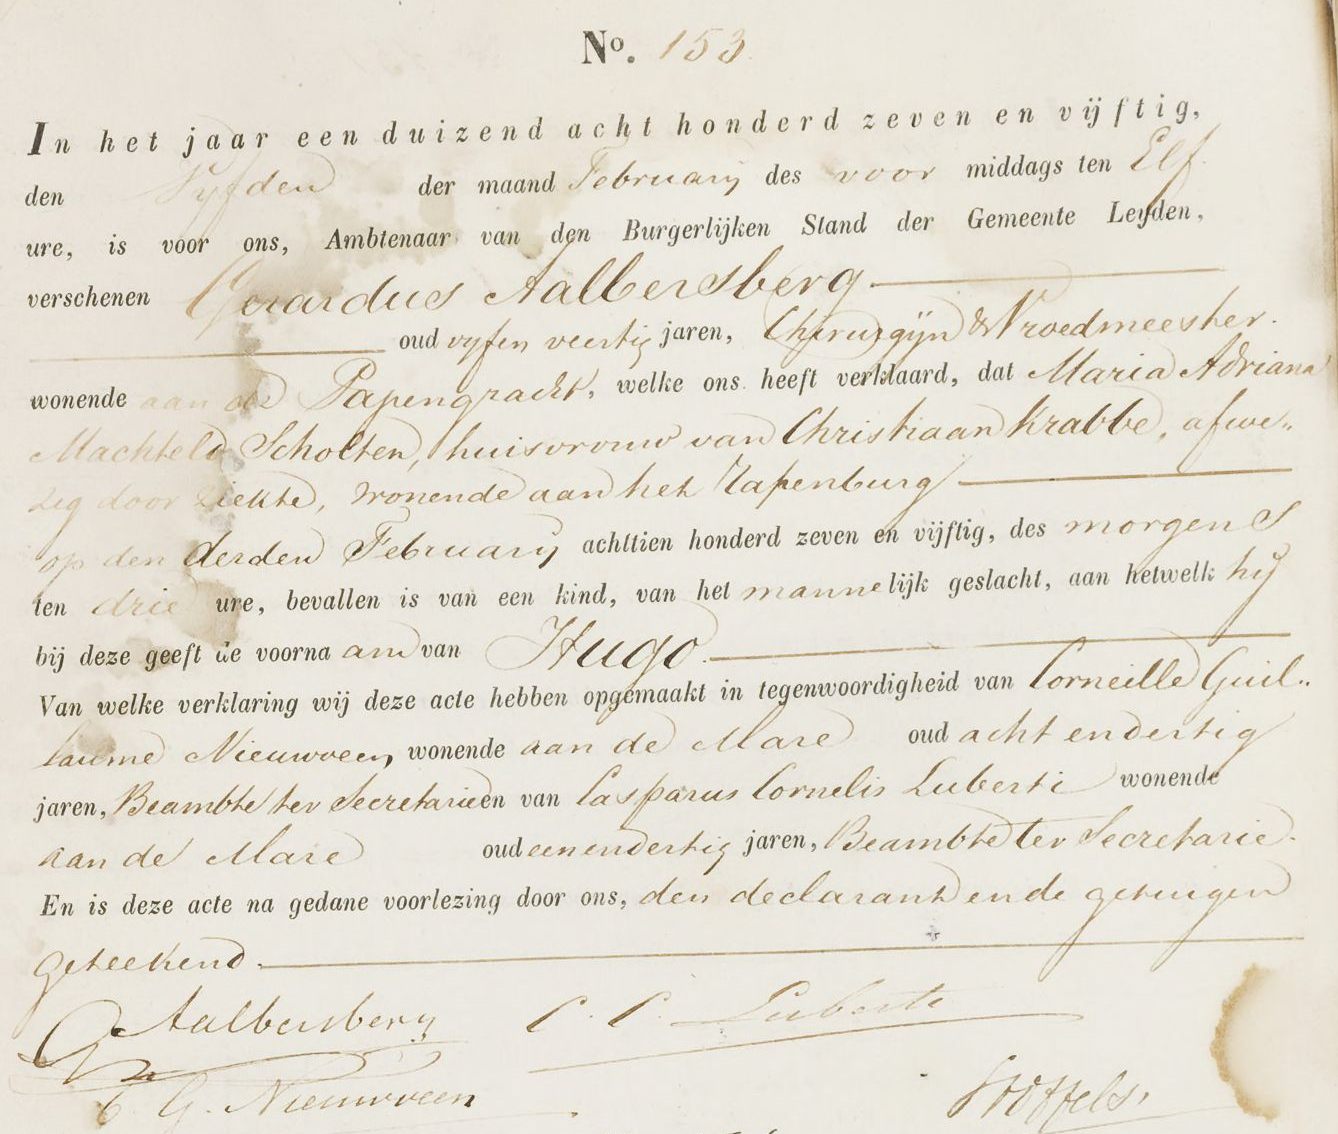 No. 153
In het jaar een duizend acht honderd zeven en vijftig,
den Vyfden der maand February des voor middags ten Elf
ure, is voor ons, Ambtenaar van den Burgerlijken Stand der Gemeente Leyden,
verschenen Gerardus Aalbersberg
oud vyf en veertig jaren, Chirurgijn & Vroedmeester.
wonende aan de Papengracht, welke ons heeft verklaard, dat Maria Adriana
Machteld Scholten, huisvrouw van Christiaan Krabbe, afwe„
zig door ziekte, wonende aan het Rapenburg
op den derden February achttien honderd zeven en vijftig, des morgens
ten drie ure, bevallen is van een kind, van het mannelijk geslacht, aan hetwelk hy
bij deze geeft de voorna am van Hugo.
Van welke verklaring wij deze acte hebben opgemaakt in tegenwoordigheid van Corneille Guil„
laume Nieuwveen, wonende aan de Mare oud acht en dertig
jaren, Beambte ter Secretarie en van Casparus Cornelis Luberti wonende
aan de Mare oud een en dertig jaren, Beambte ter Secretarie.
En is deze acte na gedane voorlezing door ons, den declarant en de getuigen
geteekend.
G Aalbersberg C. C. Luberti
C. G. Nieuwveen Stoffels